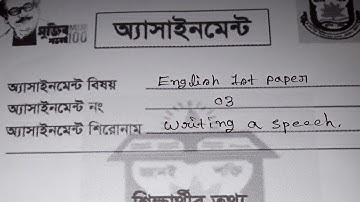 মুজিব
শতবর্ষ 100
অ্যাসাইনমেন্ট
অ্যাসাইনমেন্ট বিষয় English 1st paper
অ্যাসাইনমেন্ট নং 03
অ্যাসাইনমেন্ট শিরোনাম Writing a speech.
শিক্ষার্থীর তথ্য